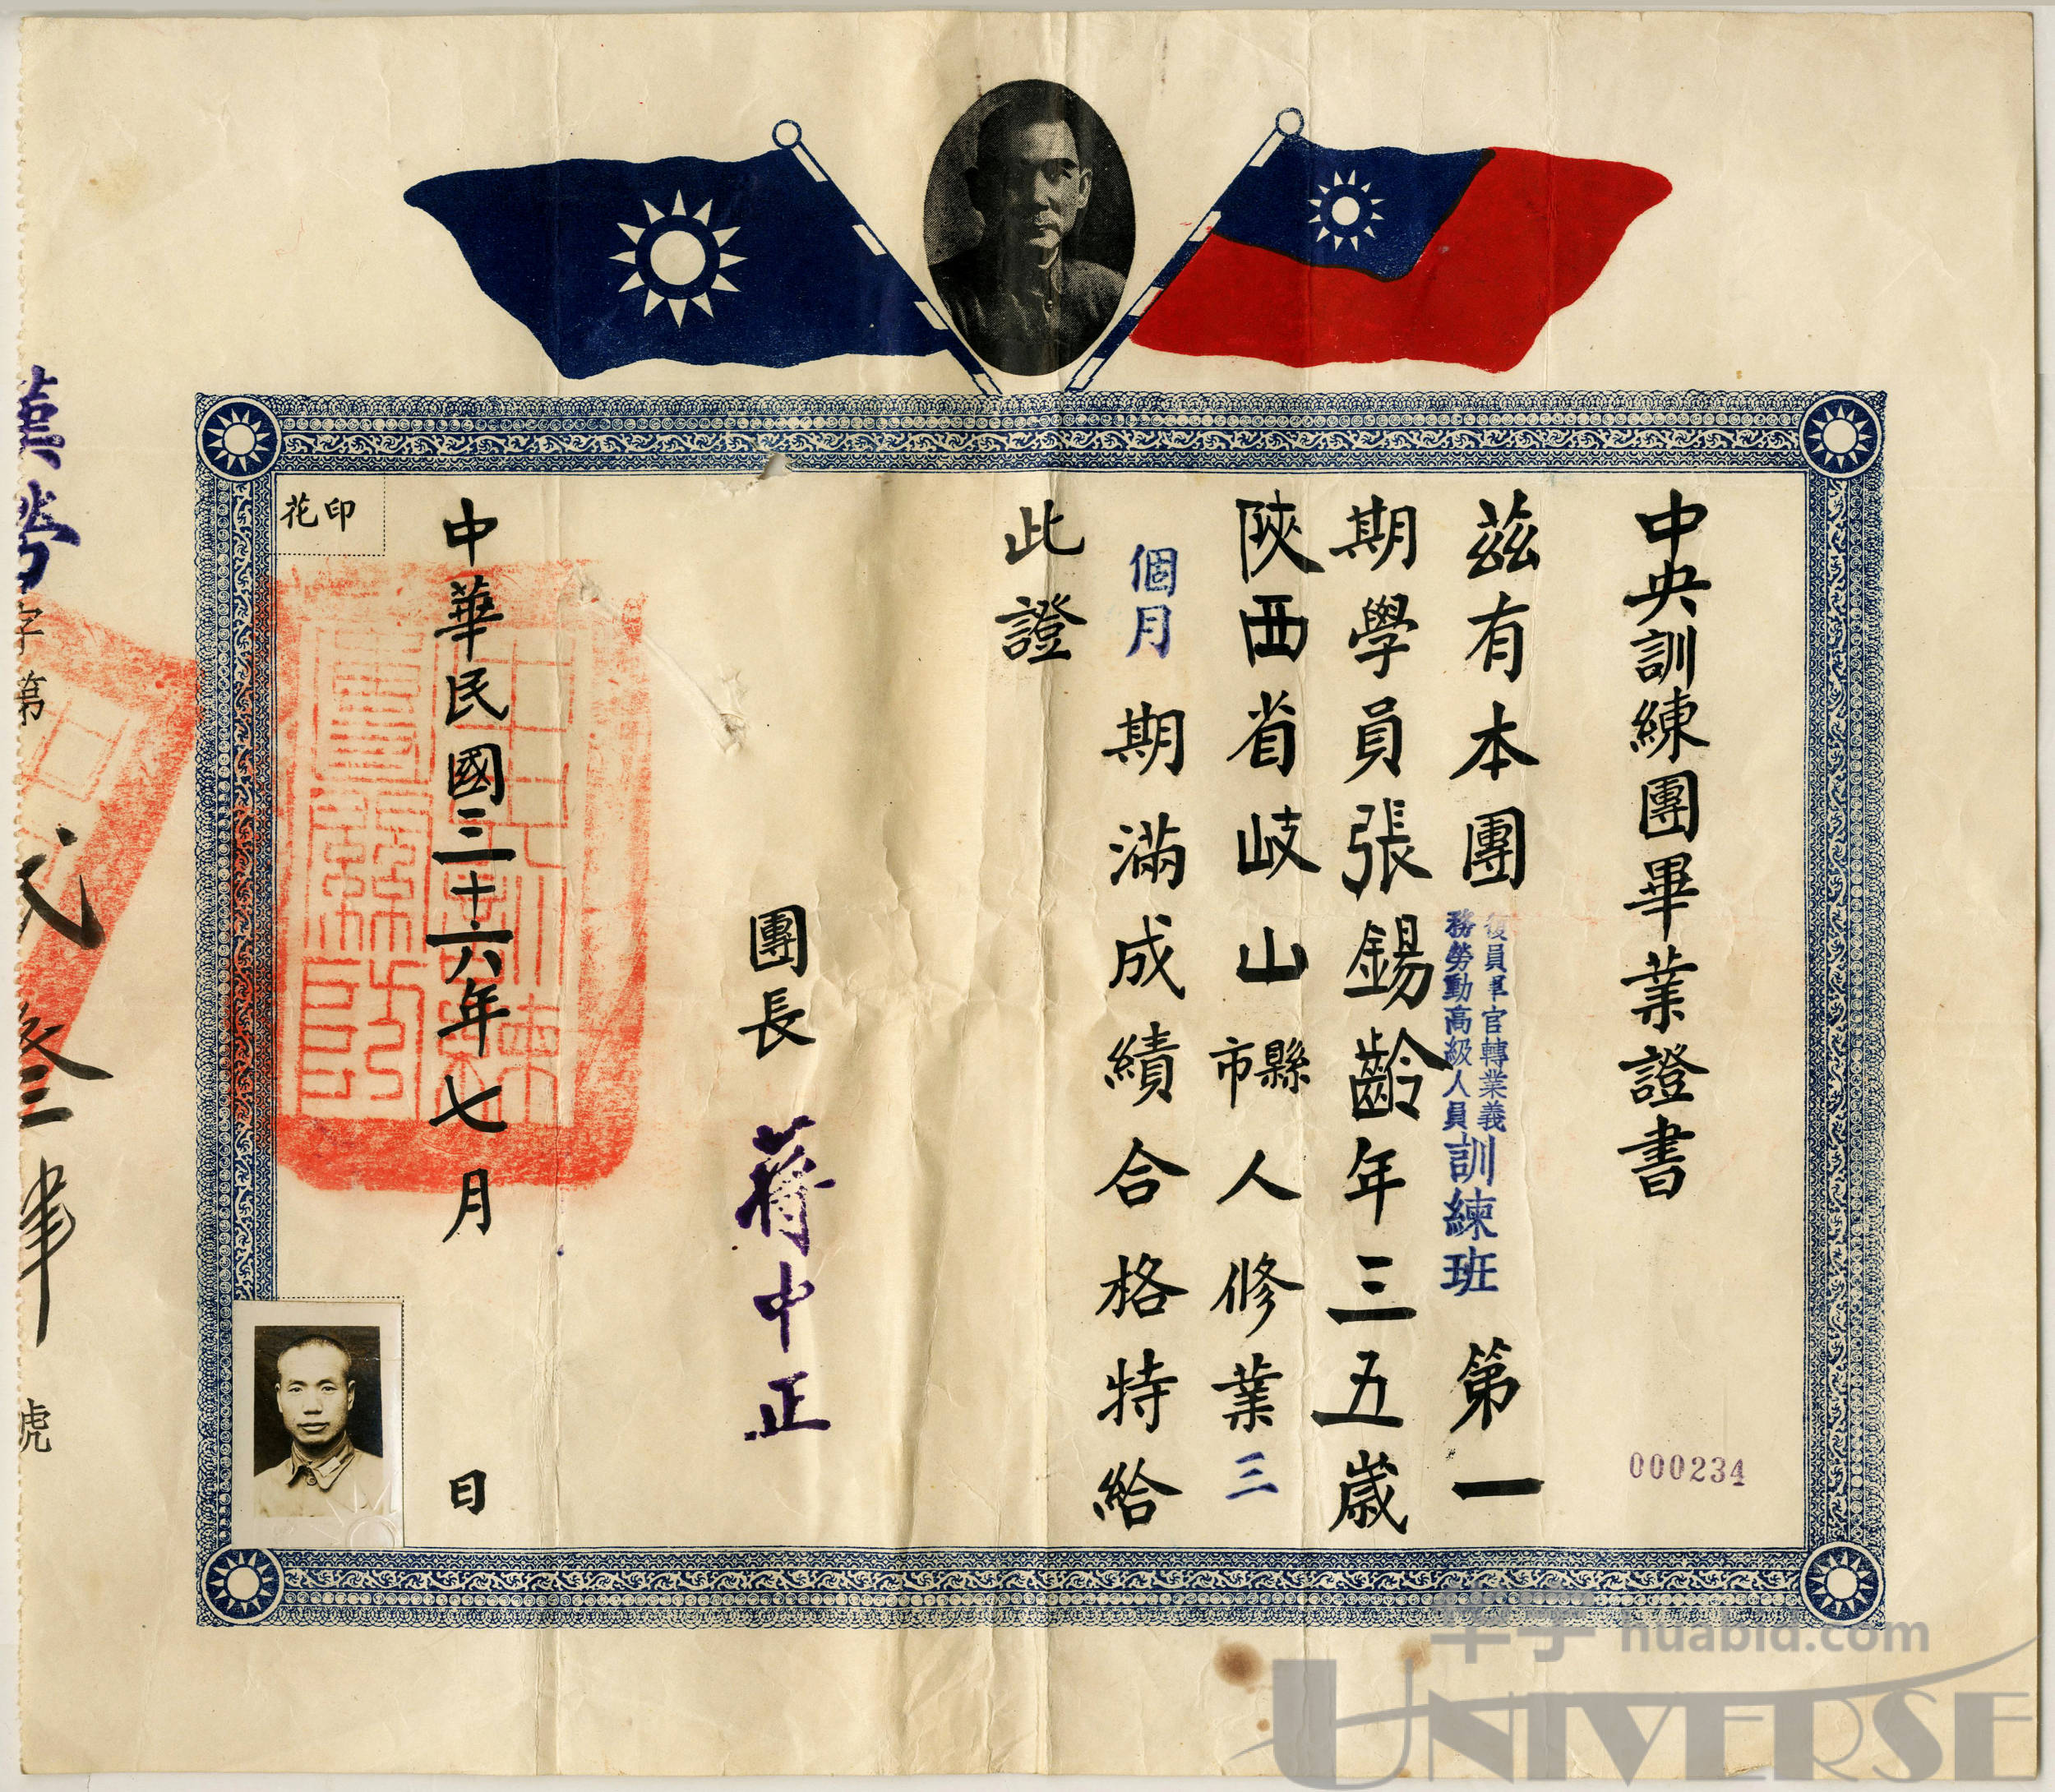 中央訓練團畢業證書
000234
茲有本團復員軍官轉業義務勞動高級人員訓練班 第一
期學員張錫齡年三五歲
陝西省岐山縣市人修業三
個月期滿成績合格特給
此證
團長 蔣中正
中華民國三十六年七月 日
印花
字第 貳叁肆 號
huabid.com
UNIVERSE